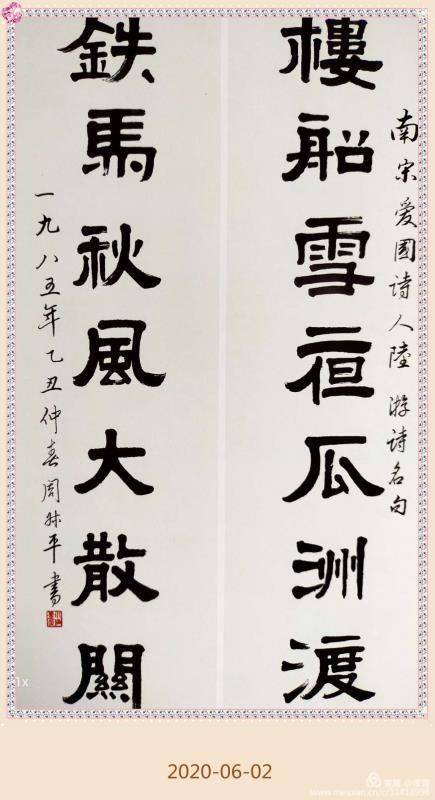 南宋爱國詩人陸游詩名句
樓船雪亱瓜洲渡
鉄馬秋風大散關
一九八五年乙丑仲春周平書
1x
2020-06-02
美篇